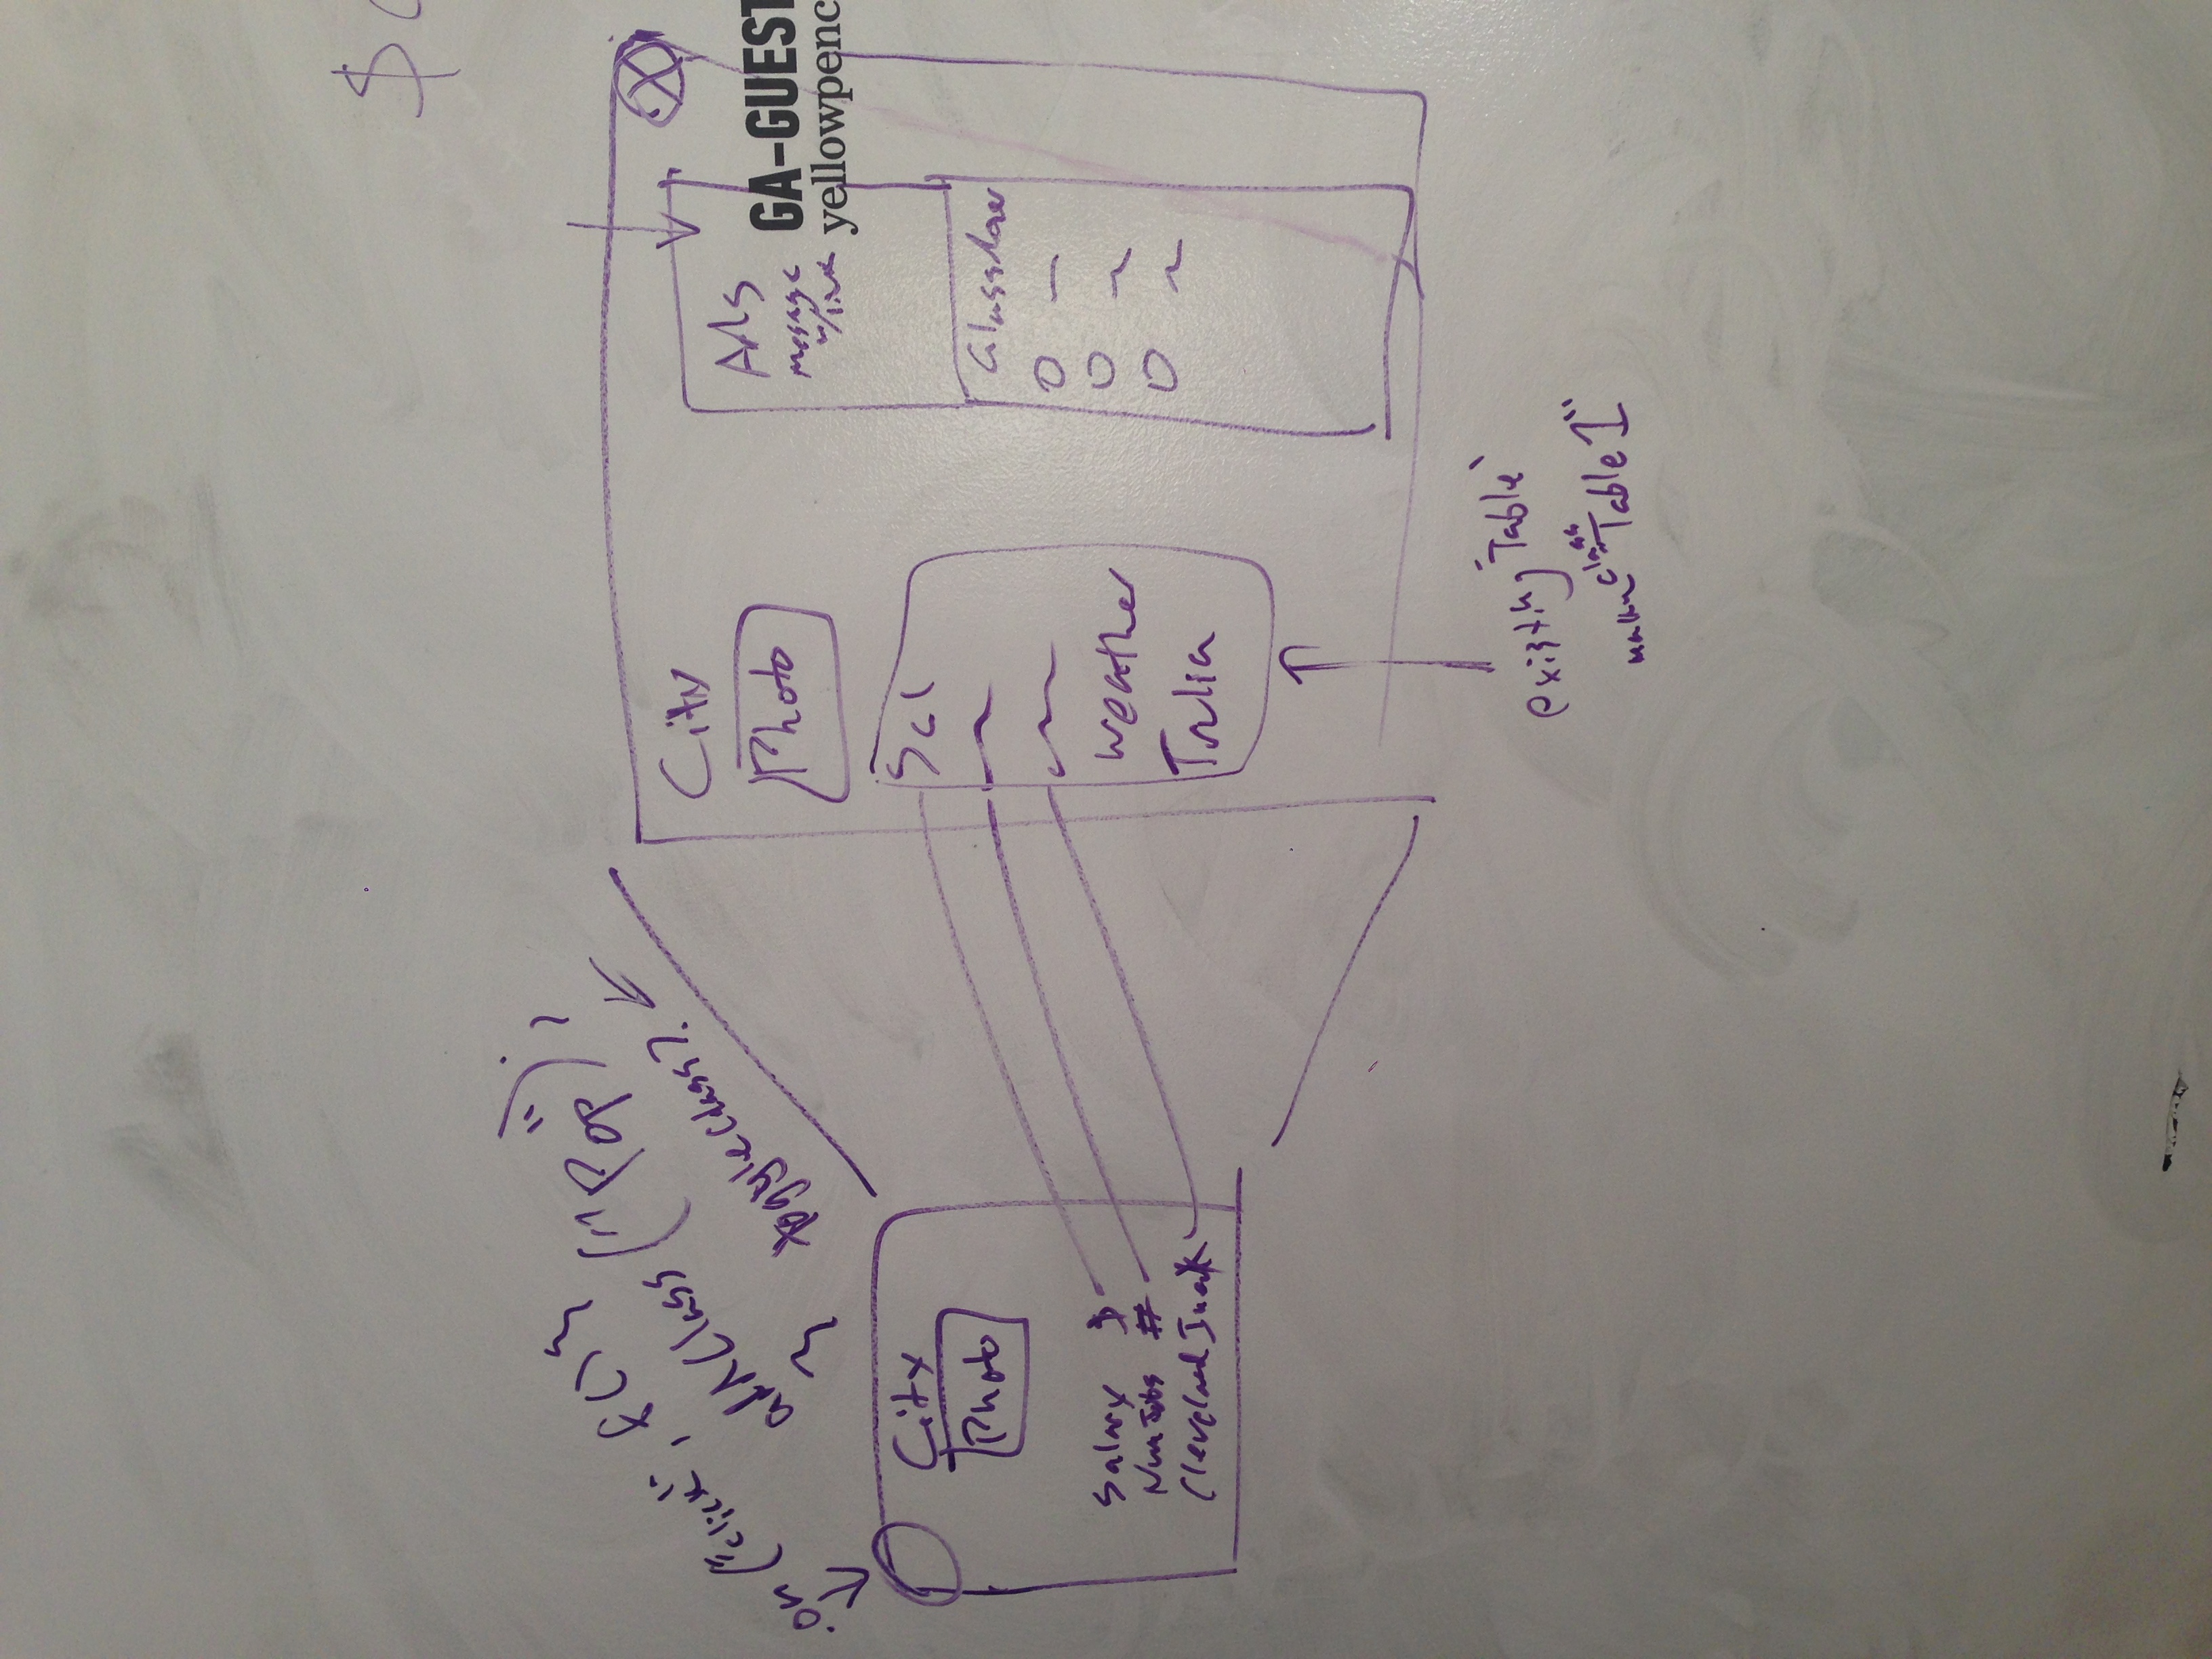 $
.on("click", f(){
addClass("Pop");
}
toggleClass?
City
Photo
Salary $
NumJobs #
Cleveland
City
Photo
Sal
Weather
Trulia
Ads
message
w/link
GA-GUEST
yellowpenc
Glassdoor
existing "Table"
class
"Table 1"